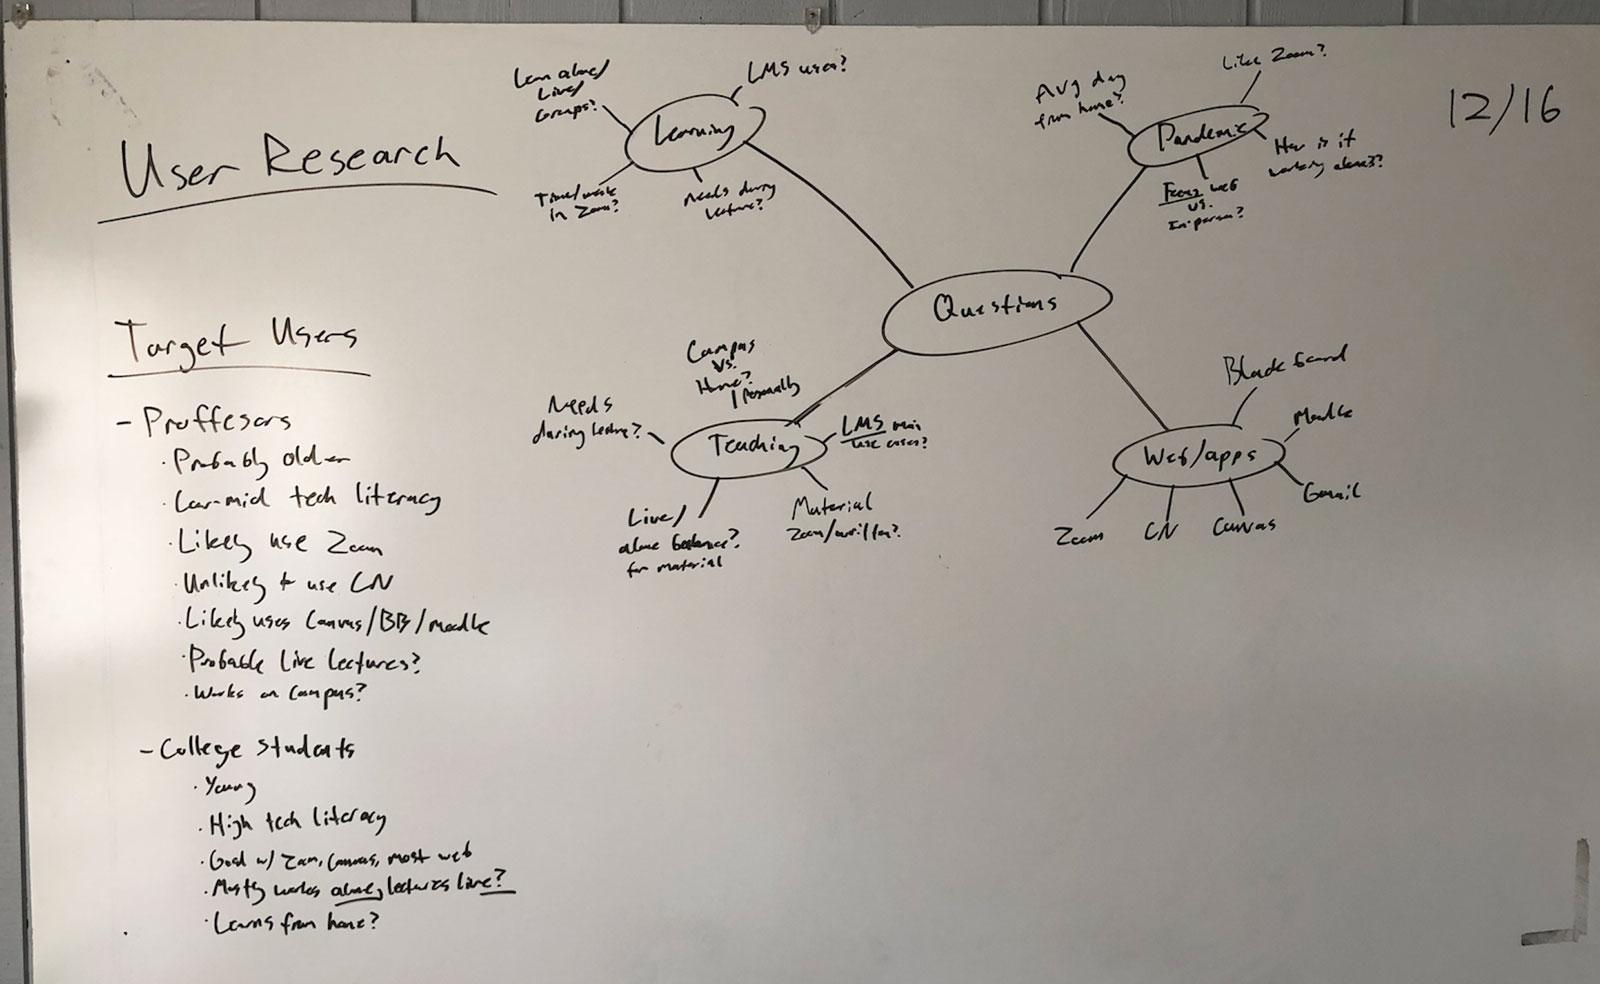 User Research
12/16
Target Users
- Proffesors
· Probably older
· Low-mid tech literacy
· Likely use Zoom
· Unlikely to use CN
· Likely uses Canvas/BB/moodle
· Probable Live Lectures?
· Works on Campus?
- College students
· Young
· High tech literacy
· Good w/ Zoom, Canvas, most web
· Mostly works alone, lectures live?
· Learns from home?
Questions
Learning
Learn alone/
Live/
Groups?
LMS uses?
Time/week
in Zoom?
Needs during
lecture?
Pandemic
Avg day
from home?
Like Zoom?
How is it
working alone?
web
vs.
In-person?
Teaching
Campus
vs.
Home?
Personally
Needs
during lecture?
LMS main
use cases?
Live/
alone
for material
Material
Zoom/written?
Web/apps
Blackboard
Moodle
Gmail
Canvas
CN
Zoom